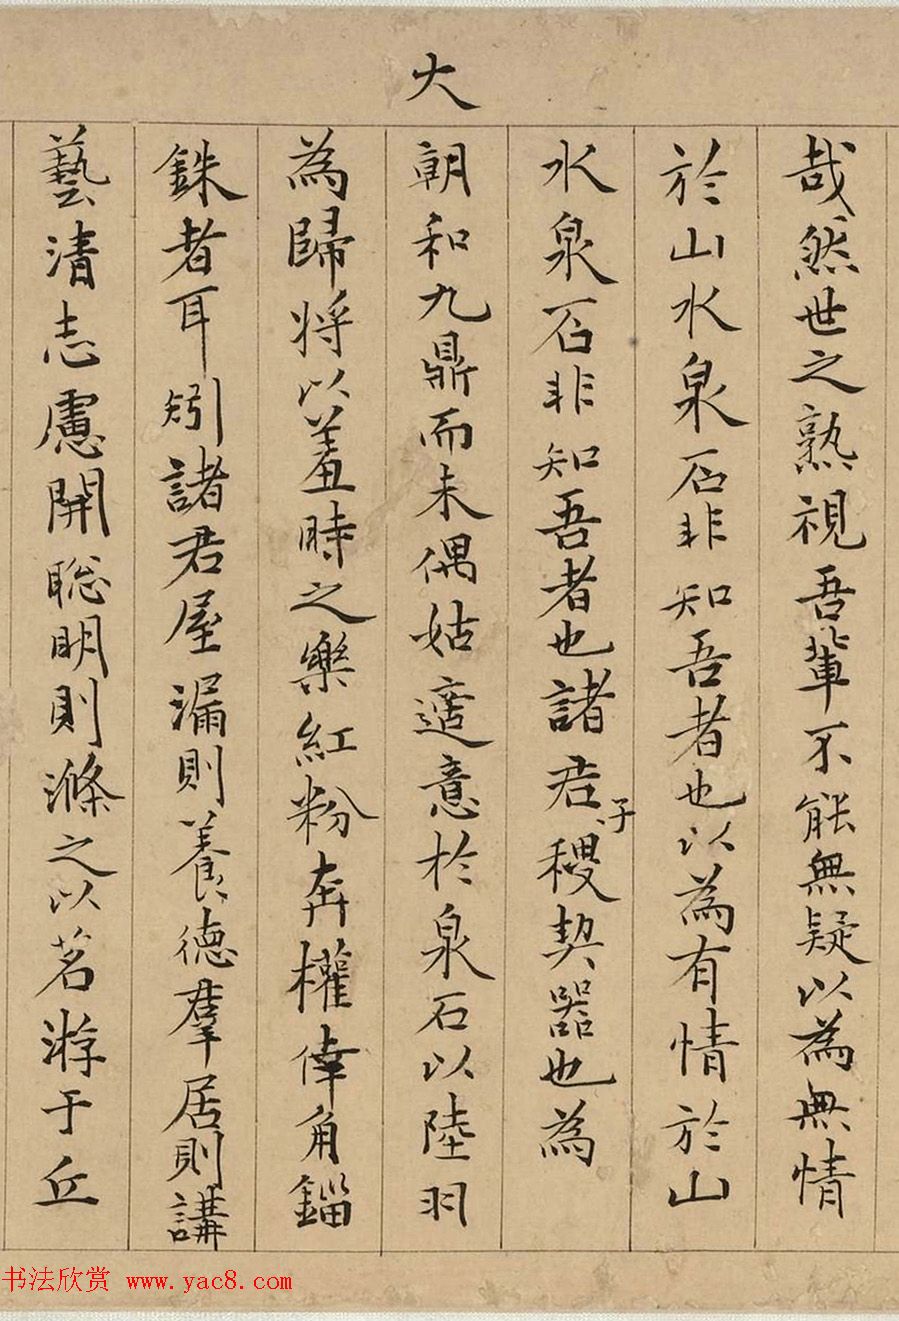 哉然世之熟視吾輩不能無疑以為無情
於山水泉石非知吾者也以為有情於山
水泉石非知吾者也諸君子稷契器也為
大
朝和九鼎而未偶姑適意於泉石以陸羽
為歸将以羞時之樂紅粉奔權倖角錙
銖者耳矧諸君屋漏則養德羣居則講
藝清志慮開聡明則滌之以茗游于丘
书法欣赏 www.yac8.com